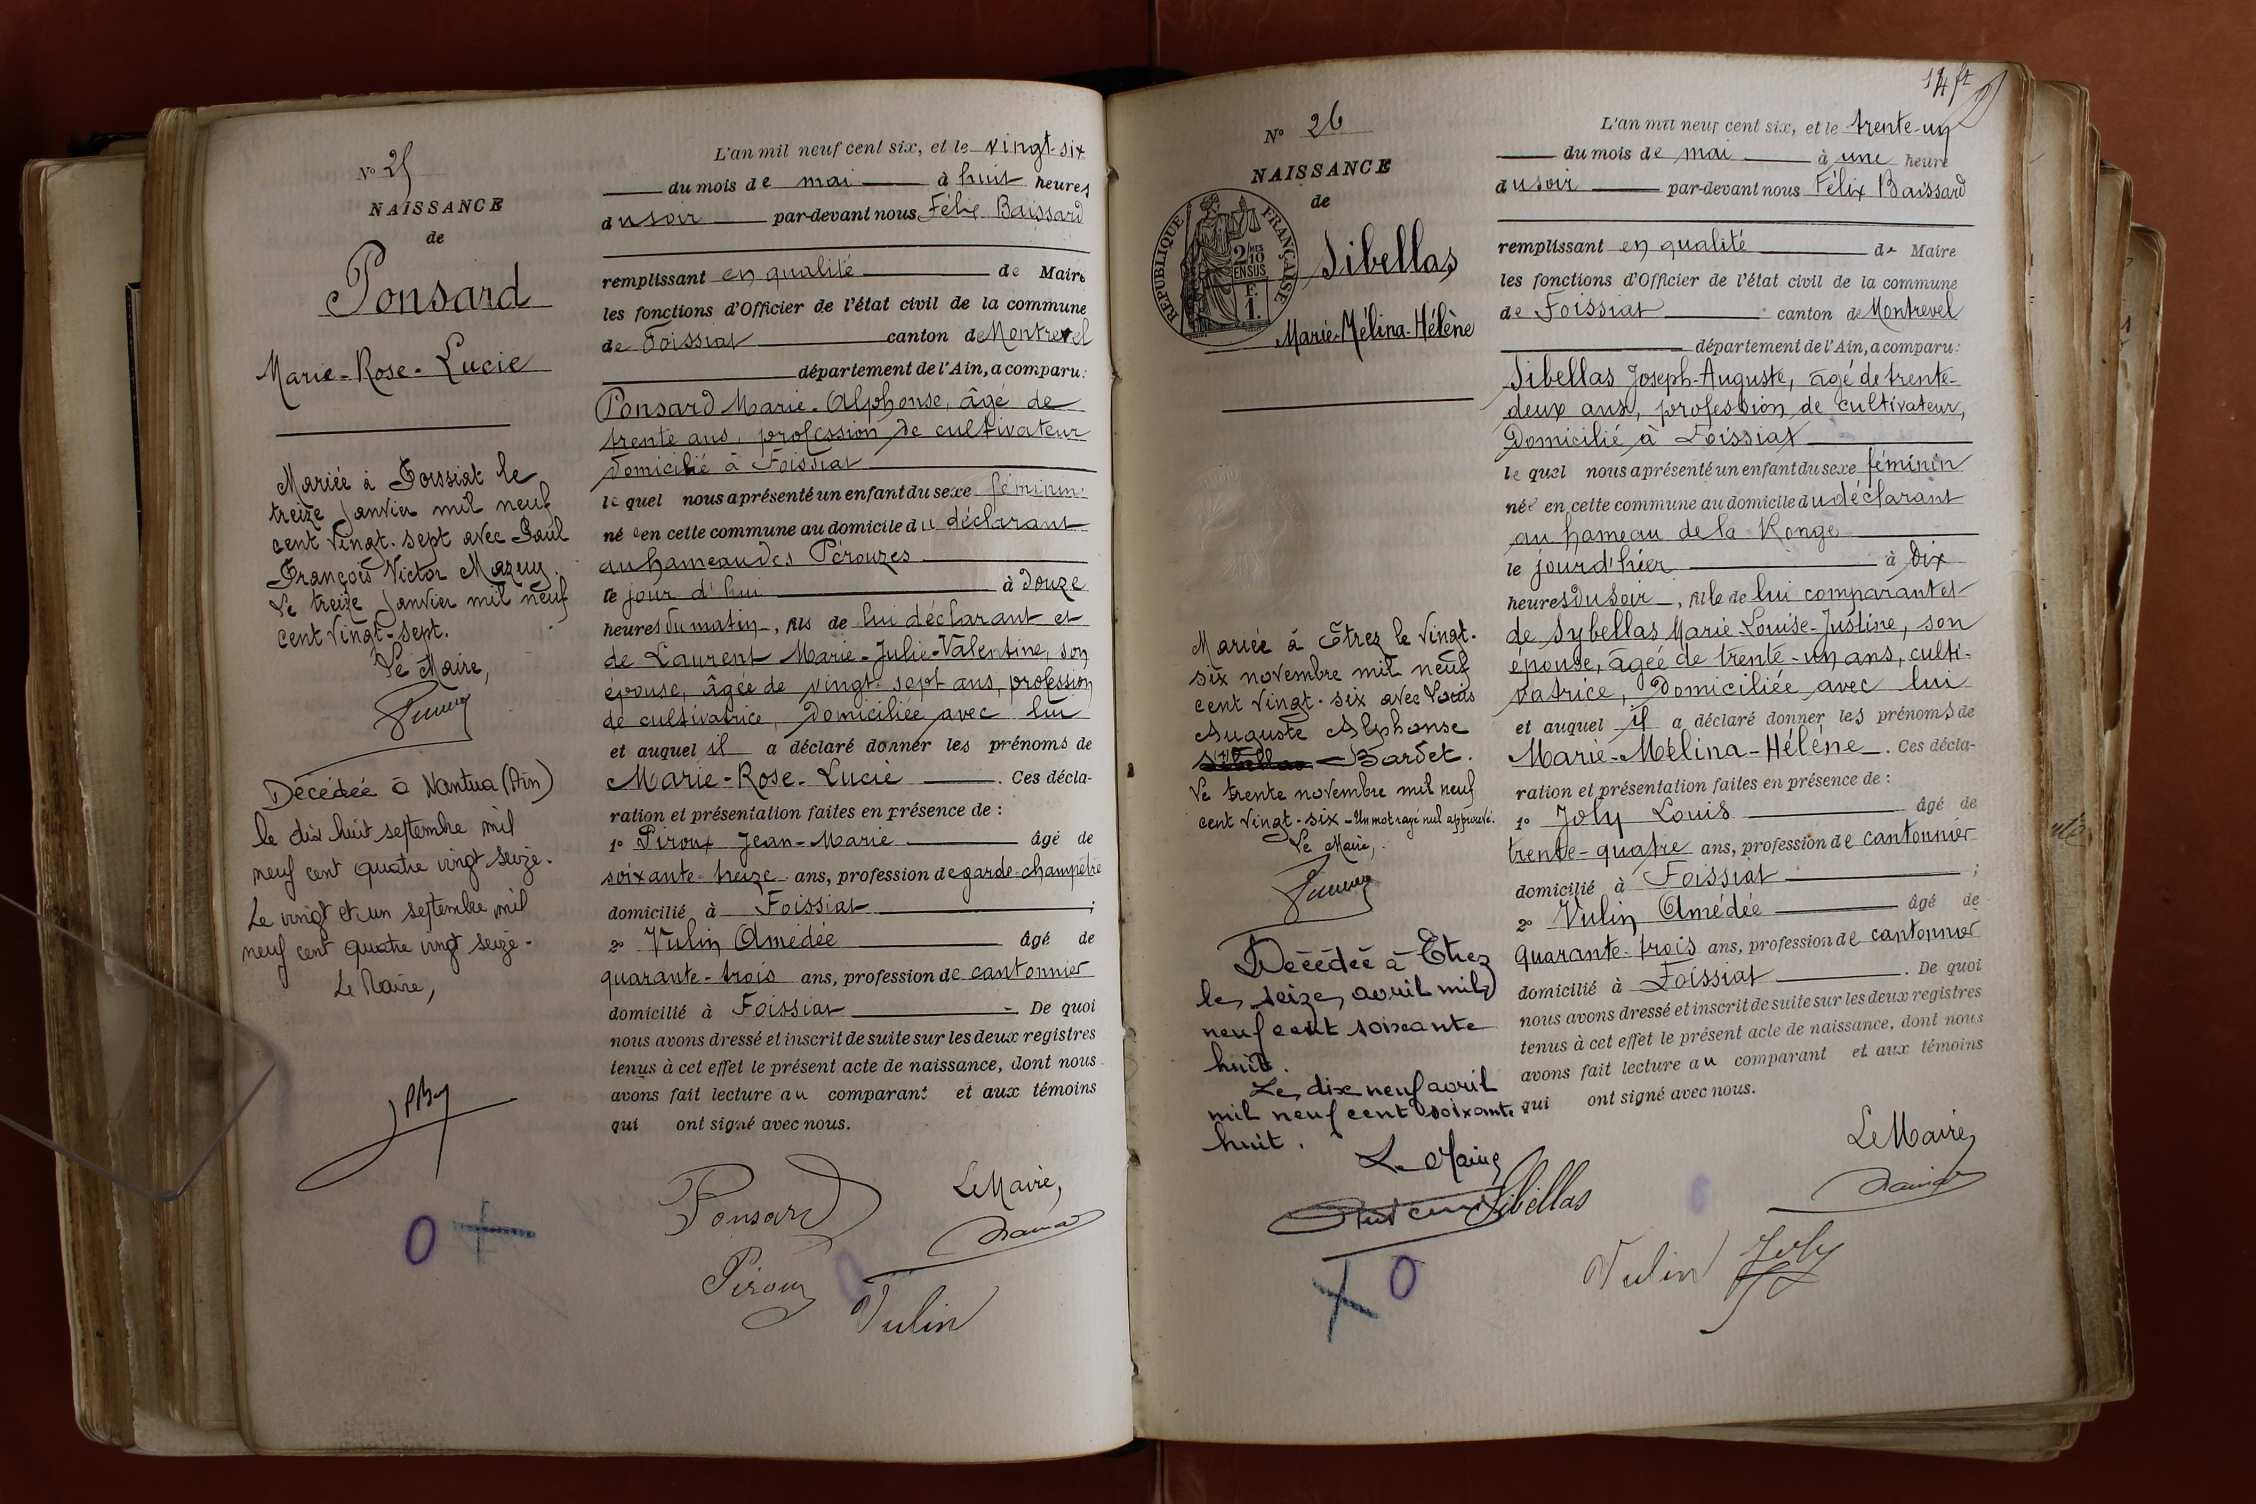 N° 25
NAISSANCE
de
Ponsard
Marie-Rose-Lucie
Mariée à Foissiat le
treize Janvier mil neuf
cent vingt-sept avec Paul
François Victor Mazuy.
Le treize Janvier mil neuf
cent vingt-sept.
Le Maire,
Décédée à Nantua (Ain)
le dix huit septembre mil
neuf cent quatre vingt seize.
Le vingt et un septembre mil
neuf cent quatre vingt seize.
Le Maire,
L'an mil neuf cent six, et le vingt-six
du mois de mai à huit heures
du soir par-devant nous Félix Baissard
remplissant en qualité de Maire
les fonctions d'Officier de l'état civil de la commune
de Foissiat canton de Montrevel
département de l'Ain, a comparu:
Ponsard Marie-Alphonse, âgé de
trente ans, profession de cultivateur
domicilié à Foissiat
le quel nous a présenté un enfant du sexe féminin
né en cette commune au domicile du déclarant
au hameau des Pérouzes
le jour d'hui à douze
heures du matin, fils de lui déclarant et
de Laurent Marie-Julie-Valentine, son
épouse, âgée de vingt-sept ans, profession
de cultivatrice, domiciliée avec lui
et auquel il a déclaré donner les prénoms de
Marie-Rose-Lucie. Ces décla-
ration et présentation faites en présence de:
1° Piroux Jean-Marie âgé de
soixante-treize ans, profession de garde-champêtre
domicilié à Foissiat;
2° Vulin Amédée âgé de
quarante-trois ans, profession de cantonnier
domicilié à Foissiat. De quoi
nous avons dressé et inscrit de suite sur les deux registres
tenus à cet effet le présent acte de naissance, dont nous
avons fait lecture au comparant et aux témoins
qui ont signé avec nous.
Ponsard
Le Maire,
Piroux
Vulin
14 ft
N° 26
NAISSANCE
de
RÉPUBLIQUE FRANÇAISE
2/10
EN SUS
F.
1.
Sibellas
Marie-Mélina-Hélène
Mariée à Etrez le vingt-
six novembre mil neuf
cent vingt-six avec Louis
Auguste Alphonse
Bardet.
Le trente novembre mil neuf
cent vingt-six - Un mot rayé nul approuvé.
Le Maire,
Décédée à Etrez
le seize avril mil
neuf cent soixante
huit.
Le dix neuf avril
mil neuf cent soixante
huit.
Le Maire
L'an mil neuf cent six, et le trente-un
du mois de mai à une heure
du soir par-devant nous Félix Baissard
remplissant en qualité de Maire
les fonctions d'Officier de l'état civil de la commune
de Foissiat canton de Montrevel
département de l'Ain, a comparu:
Sibellas Joseph-Auguste, âgé de trente-
deux ans, profession de cultivateur,
Domicilié à Foissiat
le quel nous a présenté un enfant du sexe féminin
née en cette commune au domicile du déclarant
au hameau de la Ronge
le jour d'hier à dix
heures du soir, fille de lui comparant et
de Sybellas Marie-Louise-Justine, son
épouse, âgée de trente-un ans, culti-
vatrice, domiciliée avec lui
et auquel il a déclaré donner les prénoms de
Marie-Mélina-Hélène. Ces décla-
ration et présentation faites en présence de:
1° Joly Louis âgé de
trente-quatre ans, profession de cantonnier
domicilié à Foissiat;
2° Vulin Amédée âgé de
quarante-trois ans, profession de cantonnier
domicilié à Foissiat. De quoi
nous avons dressé et inscrit de suite sur les deux registres
tenus à cet effet le présent acte de naissance, dont nous
avons fait lecture au comparant et aux témoins
qui ont signé avec nous.
Le Maire,
Sibellas
Vulin Joly